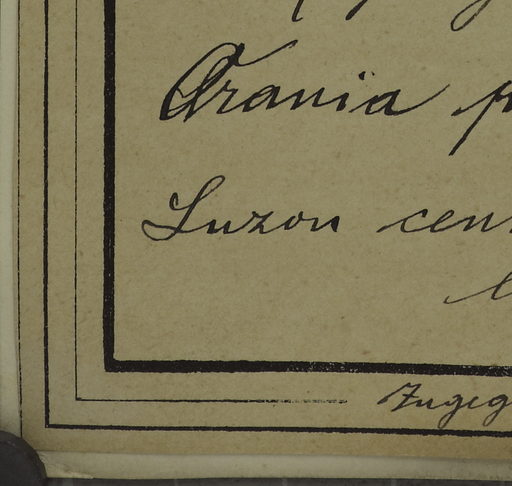 Orania p
Luzon cen
Zugeg